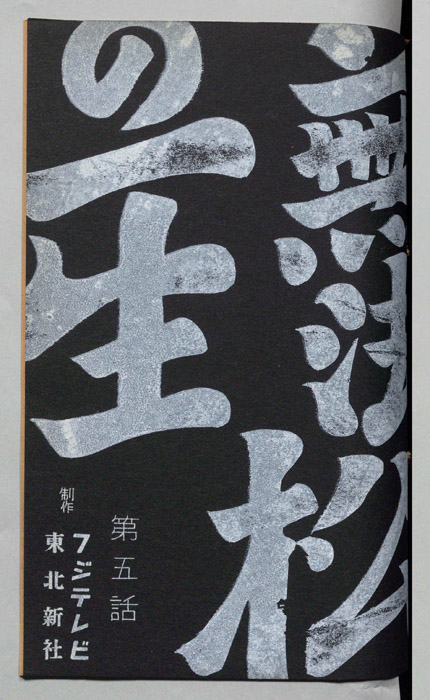 無法松
の一生
第五話
制作
フジテレビ
東北新社